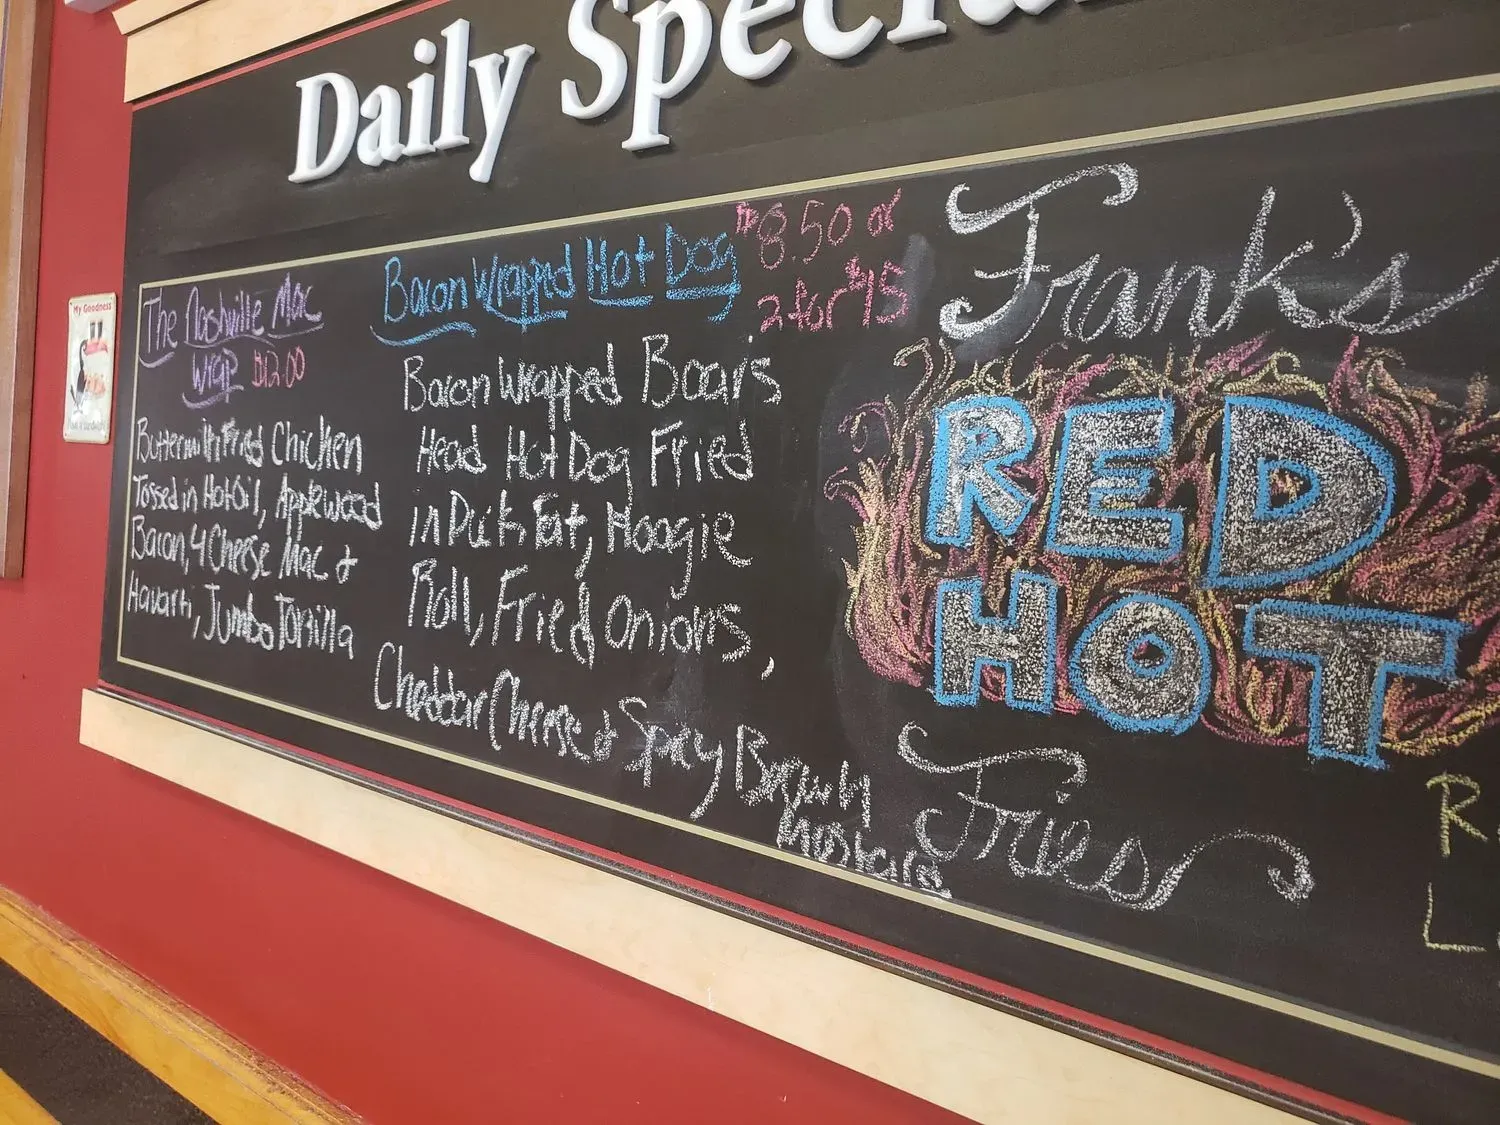 Daily Specia
The Nashville Mac
Wrap $12.00
Buttermilk Fried Chicken
Tossed in Hot Oil, Applewood
Bacon, 4 Cheese Mac &
Havarti, Jumbo Tortilla
Bacon Wrapped Hot Dog
$8.50 or
2 for $15
Bacon Wrapped Boar's
Head Hot Dog Fried
in Duck Fat, Hoagie
Roll, Fried Onions,
Cheddar Cheese & Spicy Brown
Mustard
Frank's
RED
HOT
Fries
R
L
My Goodness